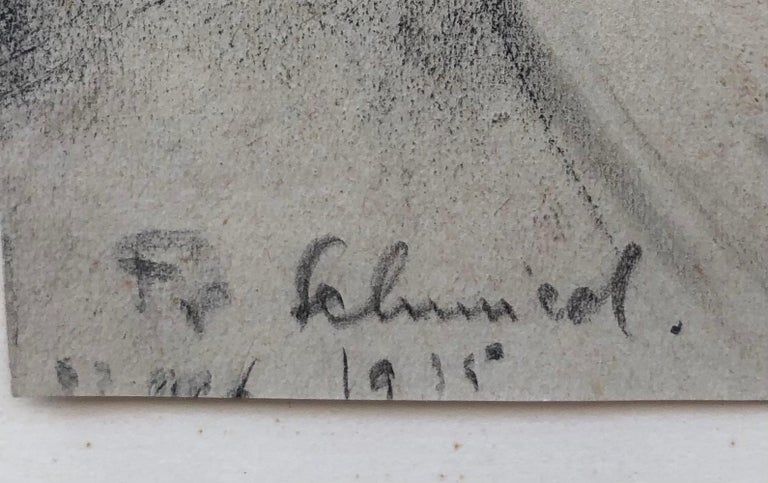 Fr Schmied.
1935